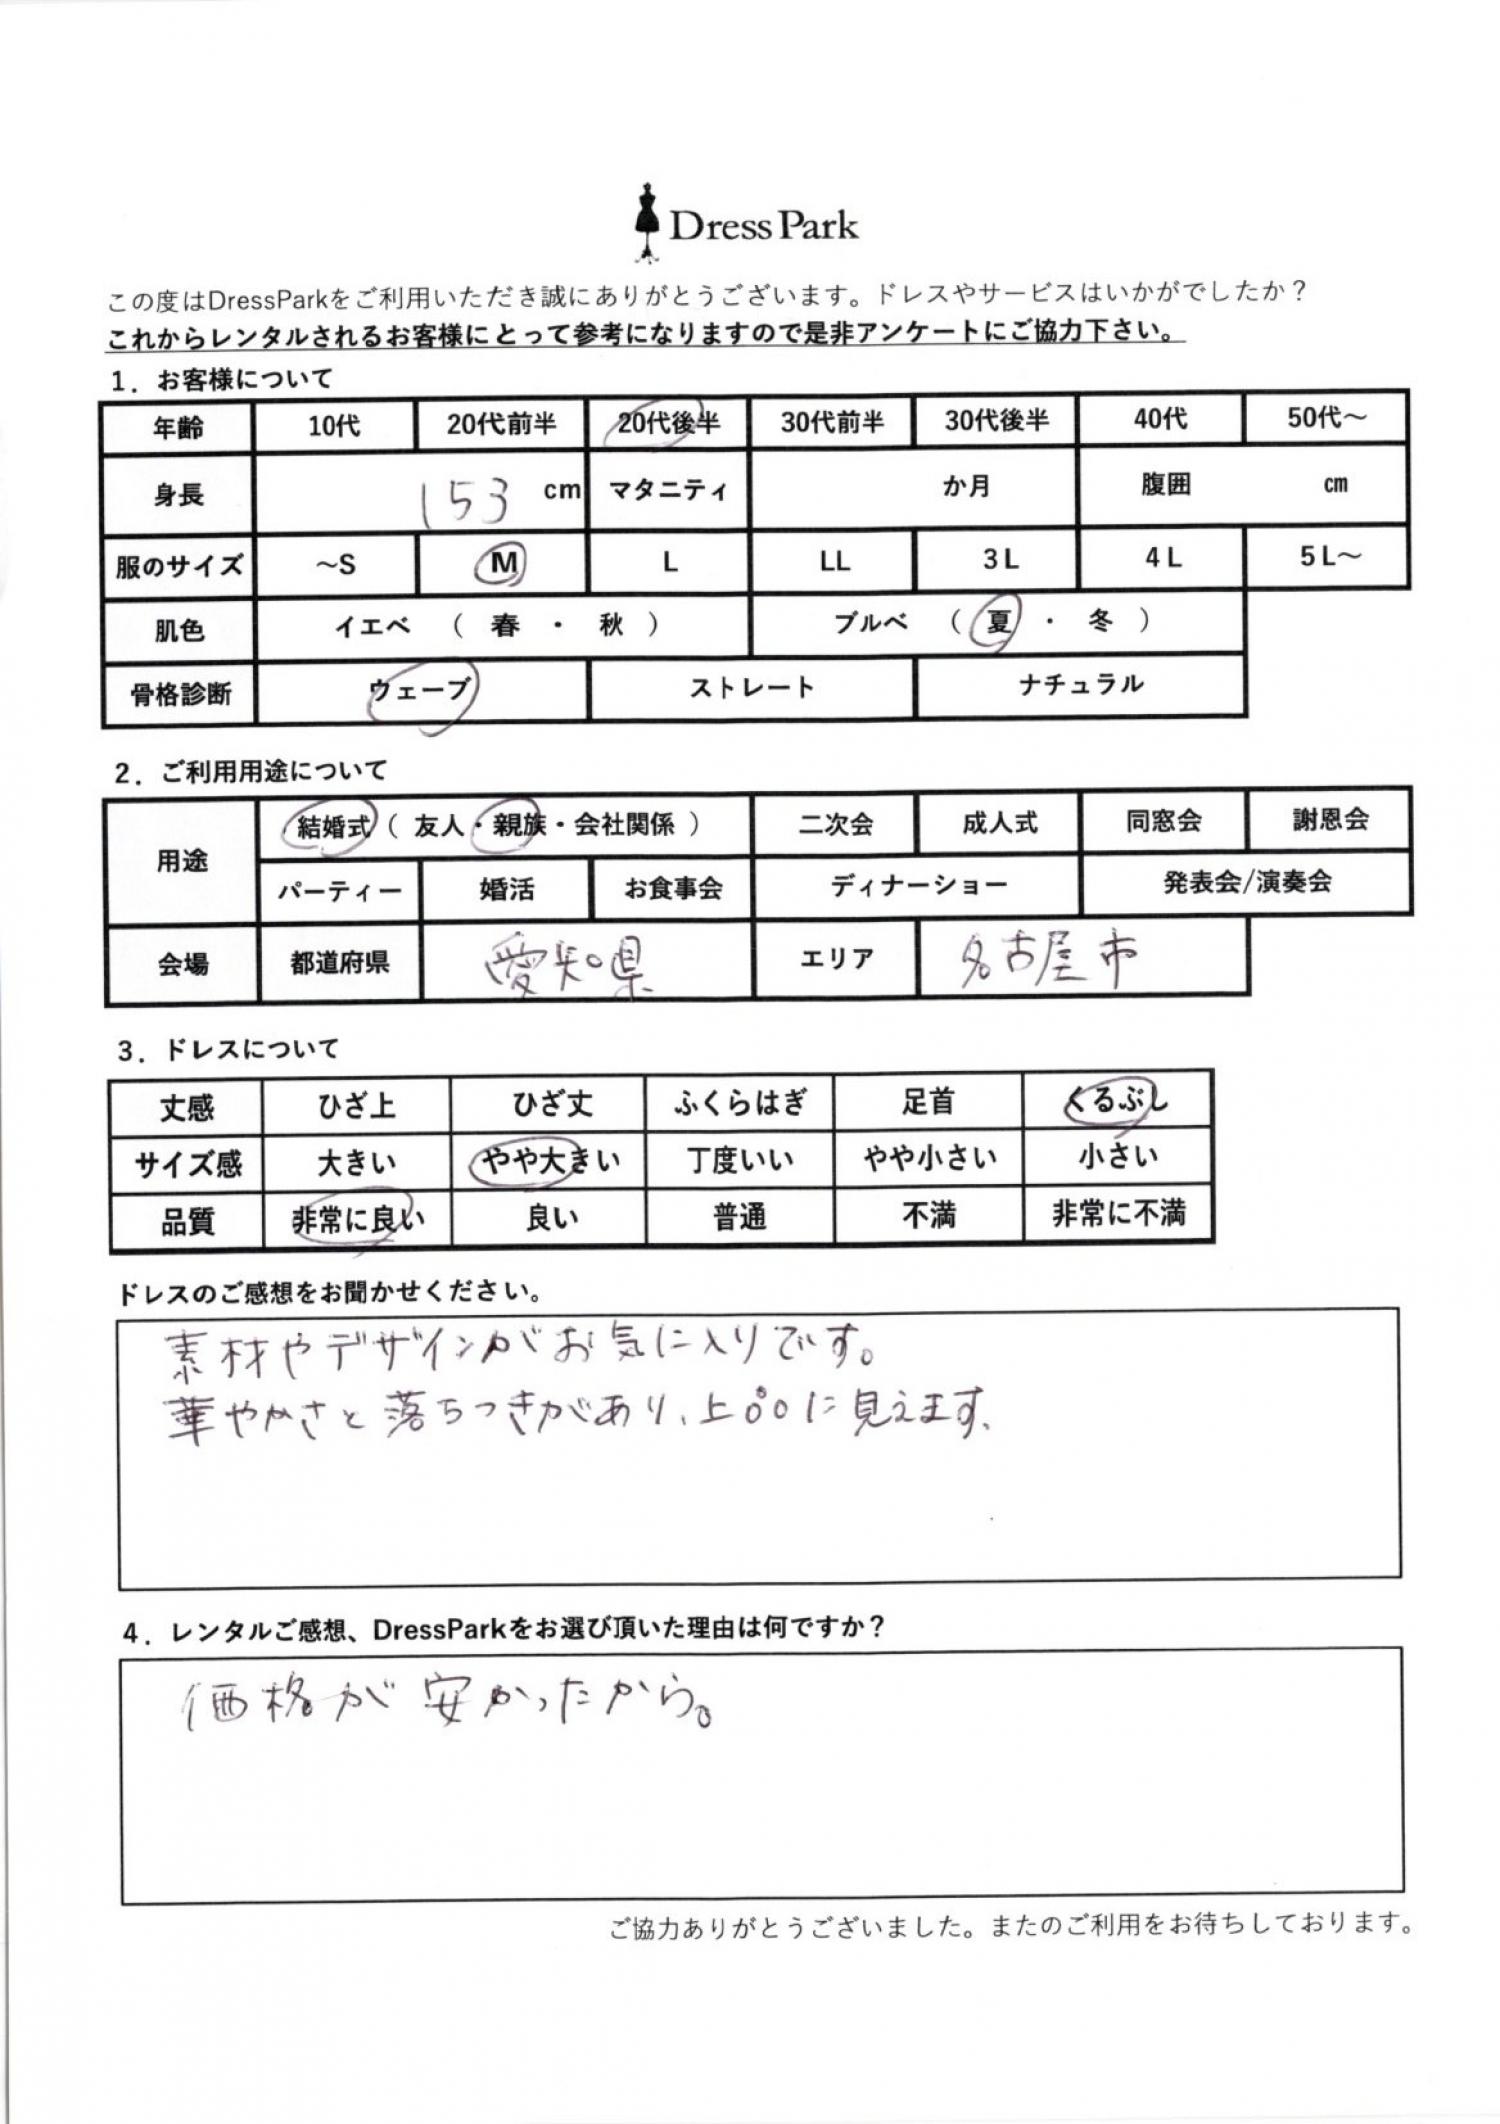 Dress Park
この度はDressParkをご利用いただき誠にありがとうございます。ドレスやサービスはいかがでしたか？
これからレンタルされるお客様にとって参考になりますので是非アンケートにご協力下さい。
1．お客様について
年齢 10代 20代前半 20代後半 30代前半 30代後半 40代 50代～
身長 153 cm マタニティ か月 腹囲 cm
服のサイズ ～S M L LL 3L 4L 5L～
肌色 イエベ （ 春 ・ 秋 ） ブルベ （ 夏 ・ 冬 ）
骨格診断 ウェーブ ストレート ナチュラル
2．ご利用用途について
用途 結婚式（ 友人・親族・会社関係 ） 二次会 成人式 同窓会 謝恩会
パーティー 婚活 お食事会 ディナーショー 発表会/演奏会
会場 都道府県 愛知県 エリア 名古屋市
3．ドレスについて
丈感 ひざ上 ひざ丈 ふくらはぎ 足首 くるぶし
サイズ感 大きい やや大きい 丁度いい やや小さい 小さい
品質 非常に良い 良い 普通 不満 非常に不満
ドレスのご感想をお聞かせください。
素材やデザインがお気に入りです。
華やかさと落ちつきがあり、上品に見えます、
4．レンタルご感想、DressParkをお選び頂いた理由は何ですか？
価格が安かったから。
ご協力ありがとうございました。またのご利用をお待ちしております。